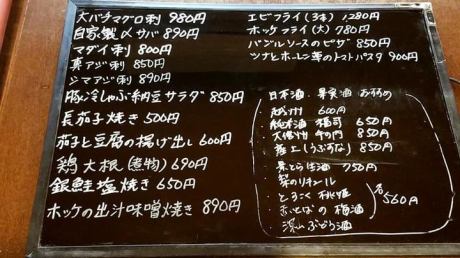 大バチマグロ刺 980円
自家製〆サバ 890円
マダイ刺 800円
真アジ刺 850円
シマアジ刺 890円
豚冷しゃぶ納豆サラダ 850円
長茄子焼き 500円
茄子と豆腐の揚げ出し 600円
鶏大根(煮物) 690円
銀鮭塩焼き 650円
ホッケの出汁味噌焼き 890円
エビフライ(3本) 1,280円
ホッケフライ(大) 780円
バジルソースのピザ 850円
ツナとホーレン草のトマトパスタ 900円
日本酒 果実酒 おすすめ
600円
純米酒 福司 650円
850円
産土(うぶすな) 850円
生酒 750円
のリキュール
とろこく桃姫
梅酒
深山ぶどう酒
各560円